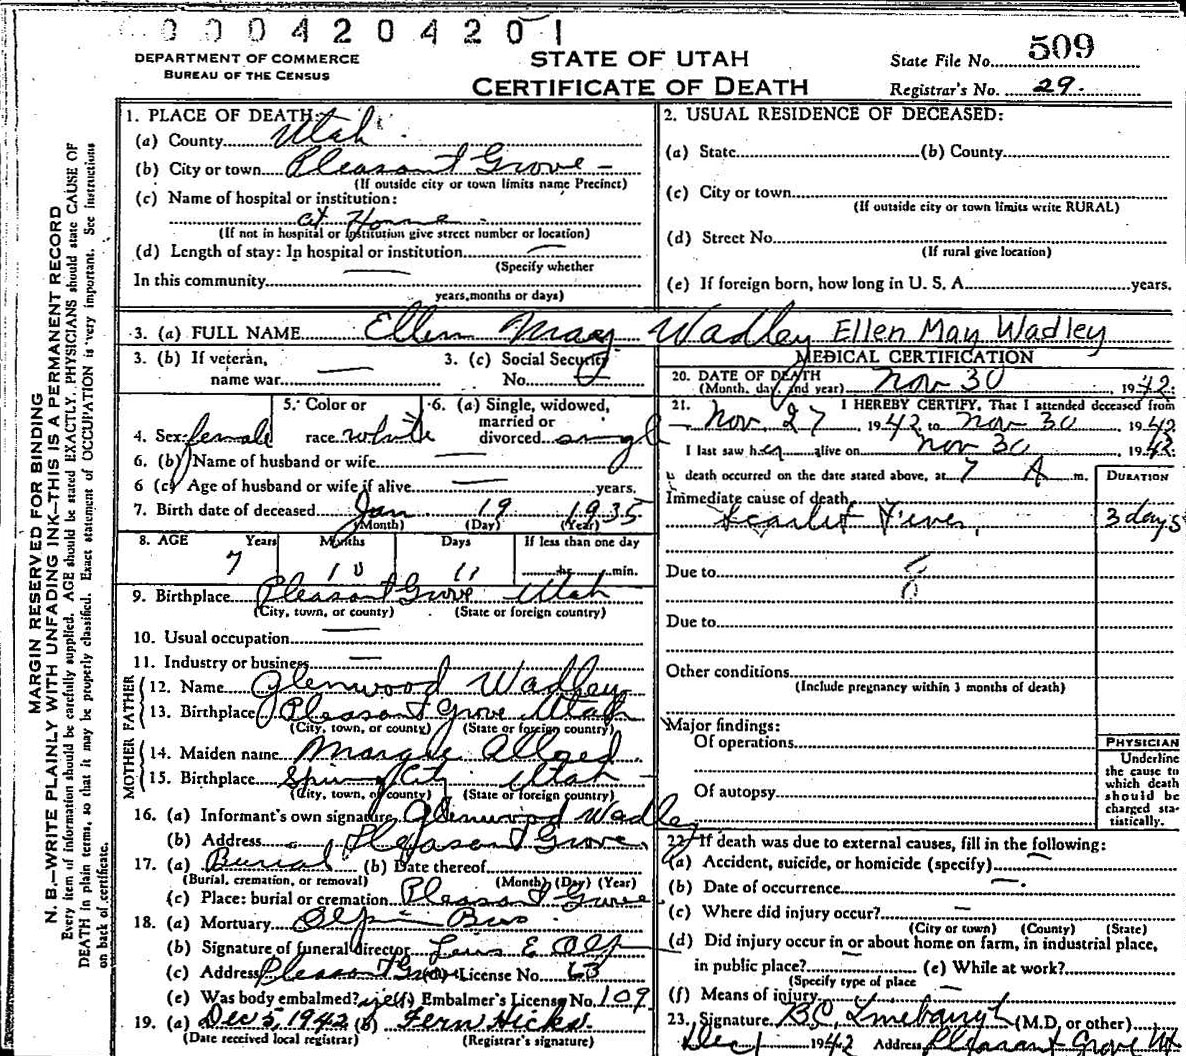 0 0 0 4 2 0 4 2 0 1
DEPARTMENT OF COMMERCE
BUREAU OF THE CENSUS
STATE OF UTAH
CERTIFICATE OF DEATH
State File No. 509
Registrar's No. 29.
MARGIN RESERVED FOR BINDING
N. B.—WRITE PLAINLY WITH UNFADING INK—THIS IS A PERMANENT RECORD
Every item of information should be carefully supplied. AGE should be stated EXACTLY. PHYSICIANS should state CAUSE OF
DEATH in plain terms, so that it may be properly classified. Exact statement of OCCUPATION is very important. See instructions
on back of certificate.
1. PLACE OF DEATH:
(a) County Utah
(b) City or town Pleasant Grove
(If outside city or town limits name Precinct)
(c) Name of hospital or institution:
at Home
(If not in hospital or institution give street number or location)
(d) Length of stay: In hospital or institution —
(Specify whether
In this community —
years, months or days)
2. USUAL RESIDENCE OF DECEASED:
(a) State (b) County
(c) City or town
(If outside city or town limits write RURAL)
(d) Street No.
(If rural give location)
(e) If foreign born, how long in U. S. A. years.
3. (a) FULL NAME Ellen May Wadley Ellen May Wadley
3. (b) If veteran,
name war —
3. (c) Social Security
No.
4. Sex female
5. Color or
race white
6. (a) Single, widowed,
married or
divorced single
6. (b) Name of husband or wife —
6 (c) Age of husband or wife if alive — years.
7. Birth date of deceased Jan 19 1935
(Month) (Day) (Year)
8. AGE Years Months Days If less than one day
7 10 11 hr. min.
9. Birthplace Pleasant Grove Utah
(City, town, or county) (State or foreign country)
10. Usual occupation —
11. Industry or business —
FATHER
12. Name Glenwood Wadley
13. Birthplace Pleasant Grove Utah
(City, town, or county) (State or foreign country)
MOTHER
14. Maiden name Allred
15. Birthplace Spring City Utah
(City, town, or county) (State or foreign country)
16. (a) Informant's own signature Glenwood Wadley
(b) Address Pleasant Grove
17. (a) Burial (b) Date thereof
(Burial, cremation, or removal) (Month) (Day) (Year)
(c) Place: burial or cremation Pleasant Grove
18. (a) Mortuary Bros
(b) Signature of funeral director
(c) Address Pleasant Grove (d) License No. 63
(e) Was body embalmed? yes (f) Embalmer's License No. 109
19. (a) Dec 5, 1942 (b) Fern Hicks
(Date received local registrar) (Registrar's signature)
MEDICAL CERTIFICATION
20. DATE OF DEATH
(Month, day, and year) Nov 30 1942
21. I HEREBY CERTIFY, That I attended deceased from
Nov. 27 1942 to Nov 30 1942
I last saw her alive on Nov 30 1942
death occurred on the date stated above, at 7 A m.
DURATION
Immediate cause of death
Scarlet Fever, 3 days
Due to
8
Due to
Other conditions
(Include pregnancy within 3 months of death)
Major findings:
Of operations
Of autopsy
PHYSICIAN
Underline
the cause to
which death
should be
charged sta-
tistically.
22. If death was due to external causes, fill in the following:
(a) Accident, suicide, or homicide (specify) —
(b) Date of occurrence —
(c) Where did injury occur? —
(City or town) (County) (State)
(d) Did injury occur in or about home on farm, in industrial place,
in public place? — (e) While at work?
(Specify type of place
(f) Means of injury —
23. Signature B.C. Linebaugh (M.D. or other)
Dec 1 1942 Address Pleasant Grove Ut